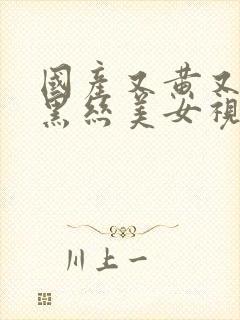 國產又黃又
黑絲美女視
川上一